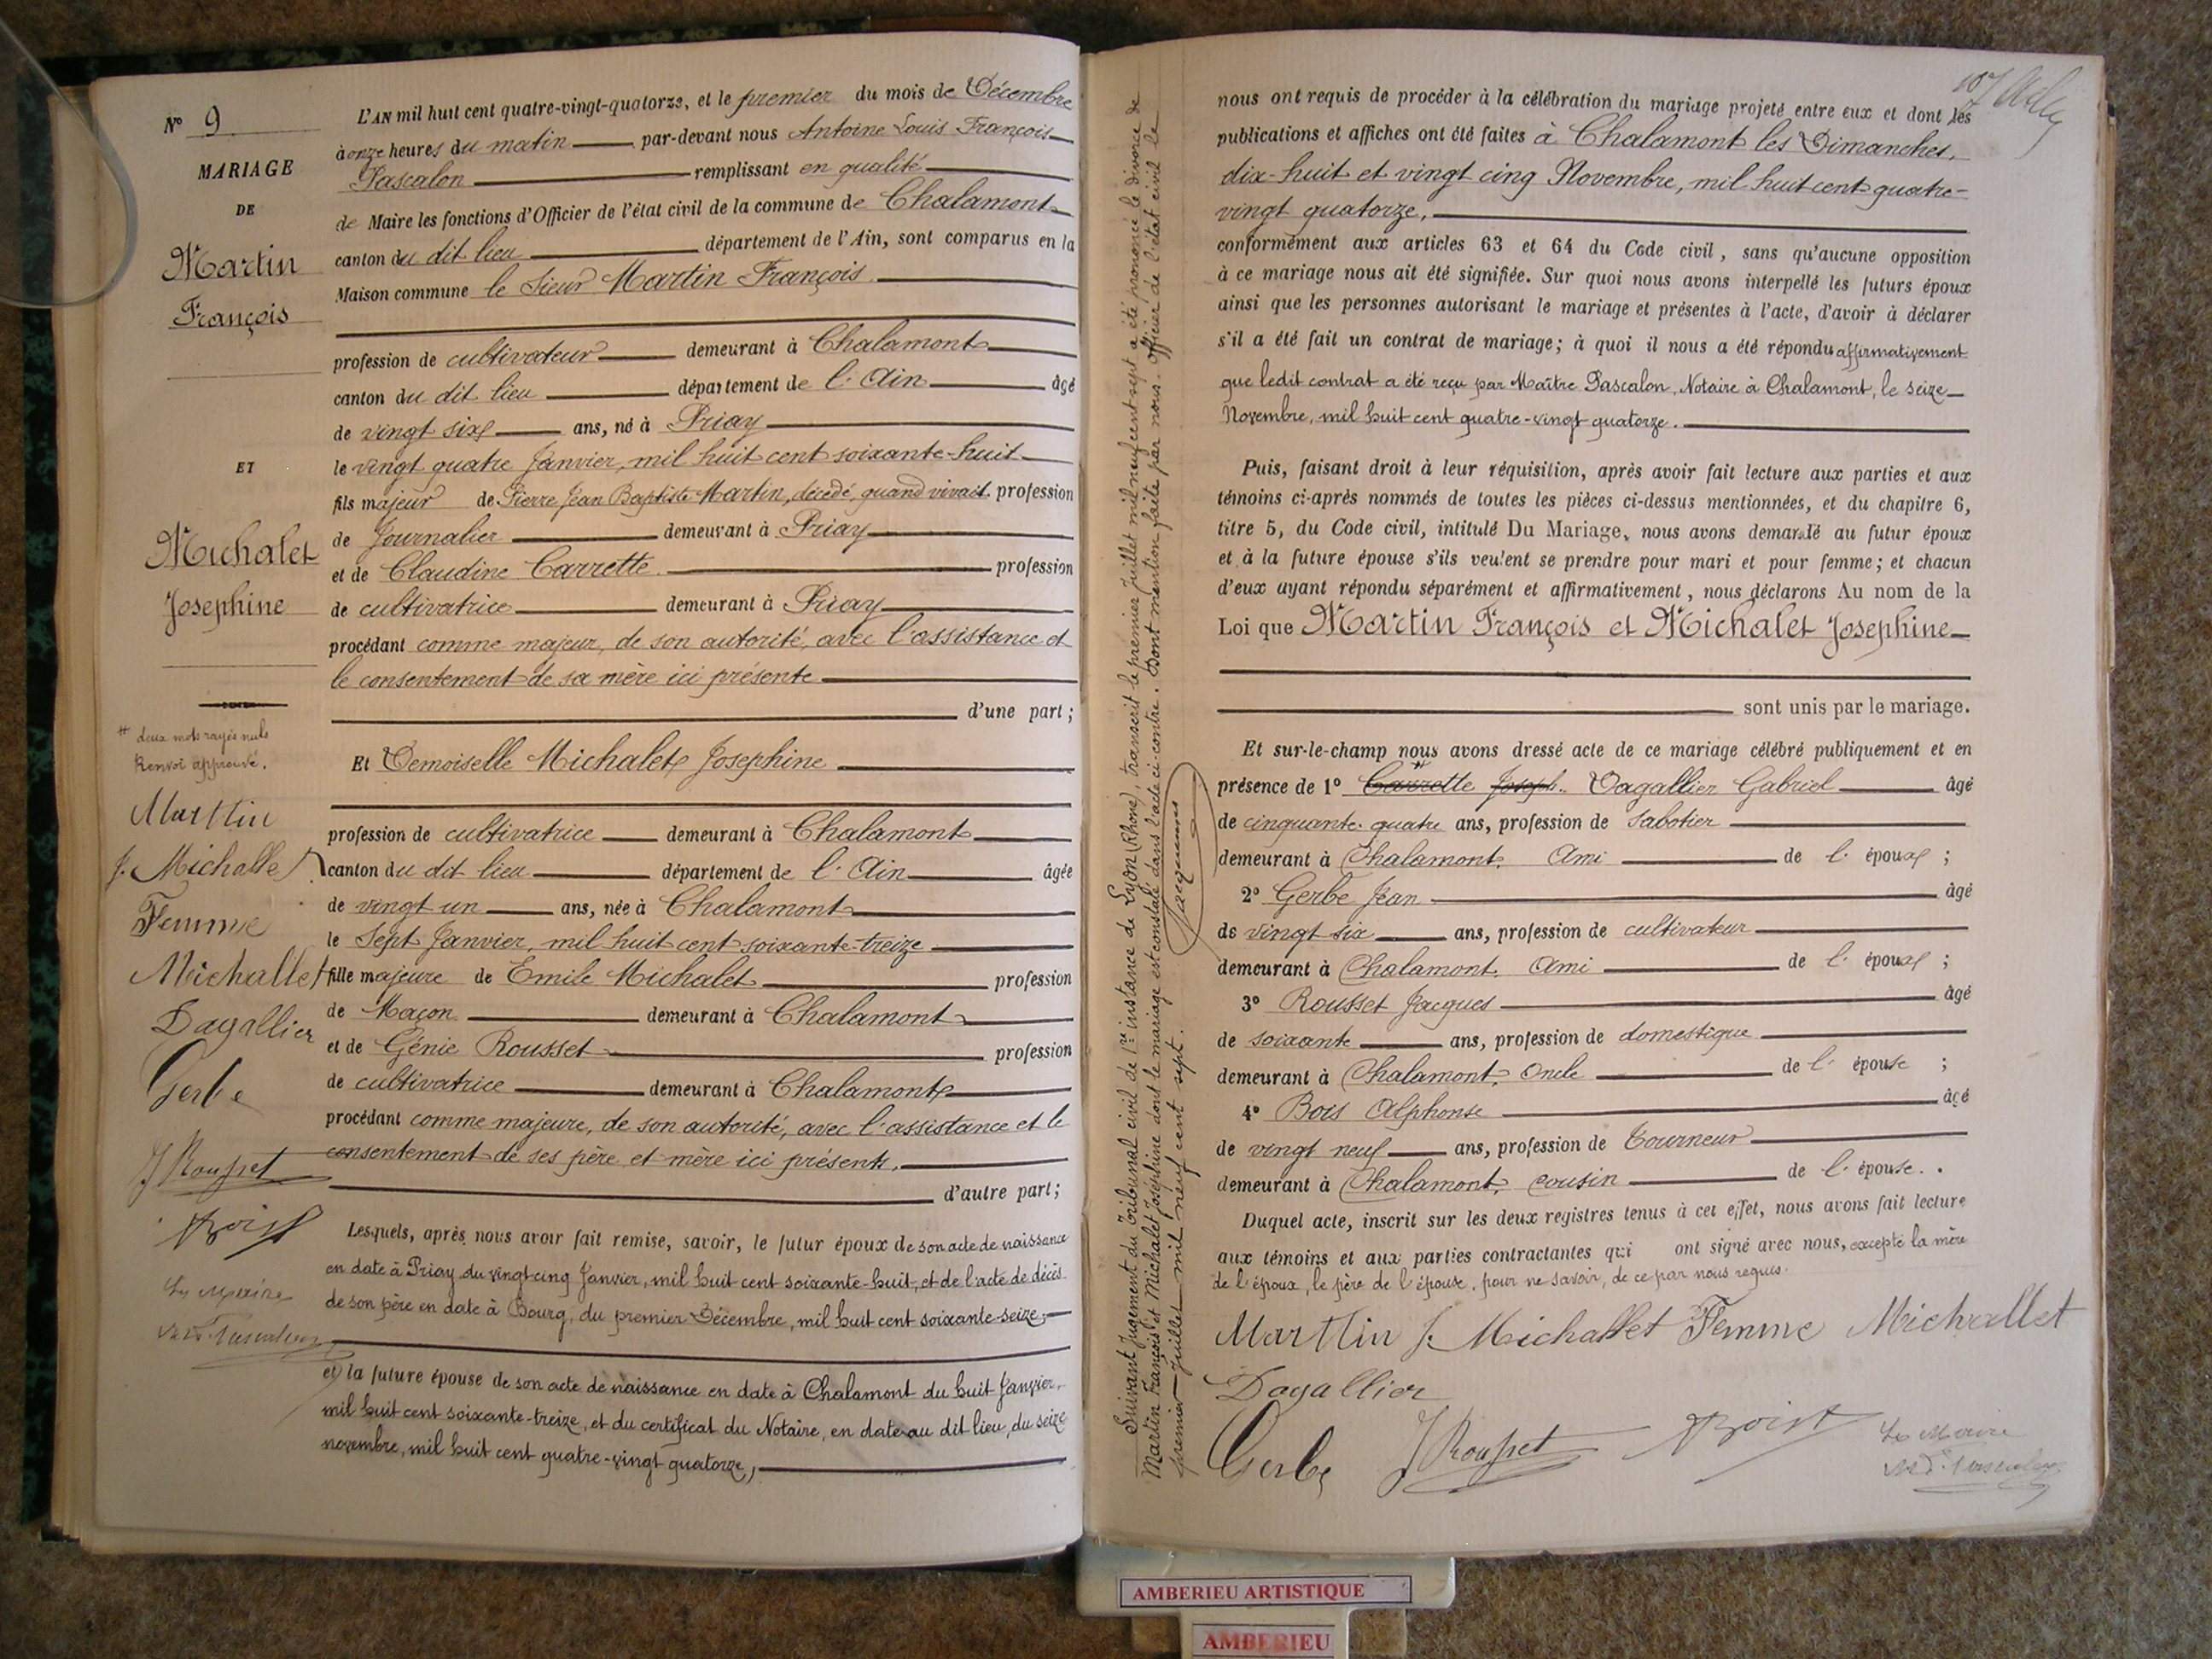 Nº 9
MARIAGE
DE
Martin
François
ET
Michalet
Josephine
# deux mots rayés nuls
Renvoi approuvé.
Marttin
J. Michallet
Femme
Michallet
Dagallier
Gerbe
J Rousset
L'AN mil huit cent quatre-vingt-quatorze, et le premier du mois de Décembre
à onze heures du matin par-devant nous Antoine Louis François
Pascalon remplissant en qualité
de Maire les fonctions d'Officier de l'état civil de la commune de Chalamont
canton du dit lieu département de l'Ain, sont comparus en la
Maison commune le Sieur Martin François
profession de cultivateur demeurant à Chalamont
canton du dit lieu département de l'Ain âgé
de vingt six ans, né à Priay
le vingt quatre Janvier, mil huit cent soixante-huit
fils majeur de Pierre Jean Baptiste Martin, décedé, quand vivait profession
de Journalier demeurant à Priay
et de Claudine Carrette profession
de cultivatrice demeurant à Priay
procédant comme majeur, de son autorité, avec l'assistance et
le consentement de sa mère ici présente
d'une part ;
Et Demoiselle Michalet Josephine
profession de cultivatrice demeurant à Chalamont
canton du dit lieu département de l'Ain âgée
de vingt un ans, née à Chalamont
le Sept Janvier, mil huit cent soixante-treize
fille majeure de Emile Michalet profession
de Maçon demeurant à Chalamont
et de Génie Rousset profession
de cultivatrice demeurant à Chalamont
procédant comme majeure, de son autorité, avec l'assistance et le
consentement de ses père et mère ici présents,
d'autre part ;
Lesquels, après nous avoir fait remise, savoir, le futur époux de son acte de naissance
en date à Priay du vingt-cinq Janvier, mil huit cent soixante-huit, et de l'acte de décès
de son père en date à Bourg, du premier Décembre, mil huit cent soixante-seize,
et la future épouse de son acte de naissance en date à Chalamont du huit Janvier,
mil huit cent soixante-treize, et du certificat du Notaire, en date au dit lieu, du seize
novembre, mil huit cent quatre-vingt quatorze,
Suivant jugement du Tribunal civil de 1re instance de Lyon (Rhône), transcrit le premier juillet mil neuf cent sept a été prononcé le divorce de
Martin François et Michalet Joséphine dont le mariage est constaté dans l'acte ci-contre. Dont mention faite par nous officier de l'état civil le
premier Juillet mil neuf cent sept.
Jacquemus
107
nous ont requis de procéder à la célébration du mariage projeté entre eux et dont les
publications et affiches ont été faites à Chalamont les Dimanches,
dix-huit et vingt cinq Novembre, mil huit cent quatre-
vingt quatorze,
conformément aux articles 63 et 64 du Code civil, sans qu'aucune opposition
à ce mariage nous ait été signifiée. Sur quoi nous avons interpellé les futurs époux
ainsi que les personnes autorisant le mariage et présentes à l'acte, d'avoir à déclarer
s'il a été fait un contrat de mariage ; à quoi il nous a été répondu affirmativement
que ledit contrat a été reçu par Maître Pascalon, Notaire à Chalamont, le seize
Novembre, mil huit cent quatre-vingt quatorze.
Puis, faisant droit à leur réquisition, après avoir fait lecture aux parties et aux
témoins ci-après nommés de toutes les pièces ci-dessus mentionnées, et du chapitre 6,
titre 5, du Code civil, intitulé Du Mariage, nous avons demandé au futur époux
et à la future épouse s'ils veulent se prendre pour mari et pour femme ; et chacun
d'eux ayant répondu séparément et affirmativement, nous déclarons Au nom de la
Loi que Martin François et Michalet Josephine
sont unis par le mariage.
Et sur-le-champ nous avons dressé acte de ce mariage célébré publiquement et en
présence de 1º Carrette Joseph. # Dagallier Gabriel âgé
de cinquante-quatre ans, profession de Sabotier
demeurant à Chalamont, Ami de l'époux ;
2º Gerbe Jean âgé
de vingt six ans, profession de cultivateur
demeurant à Chalamont, Ami de l'époux ;
3º Rousset Jacques âgé
de soixante ans, profession de domestique
demeurant à Chalamont, Oncle de l'épouse ;
4º Bois Alphonse âgé
de vingt neuf ans, profession de Tourneur
demeurant à Chalamont, cousin de l'épouse.
Duquel acte, inscrit sur les deux registres tenus à cet effet, nous avons fait lecture
aux témoins et aux parties contractantes qui ont signé avec nous, excepté la mère
de l'époux, le père de l'épouse, pour ne savoir, de ce par nous requis.
Marttin J. Michallet Femme Michallet
Dagallier
Gerbe J Rousset
Le Maire
AMBERIEU ARTISTIQUE
AMBERIEU